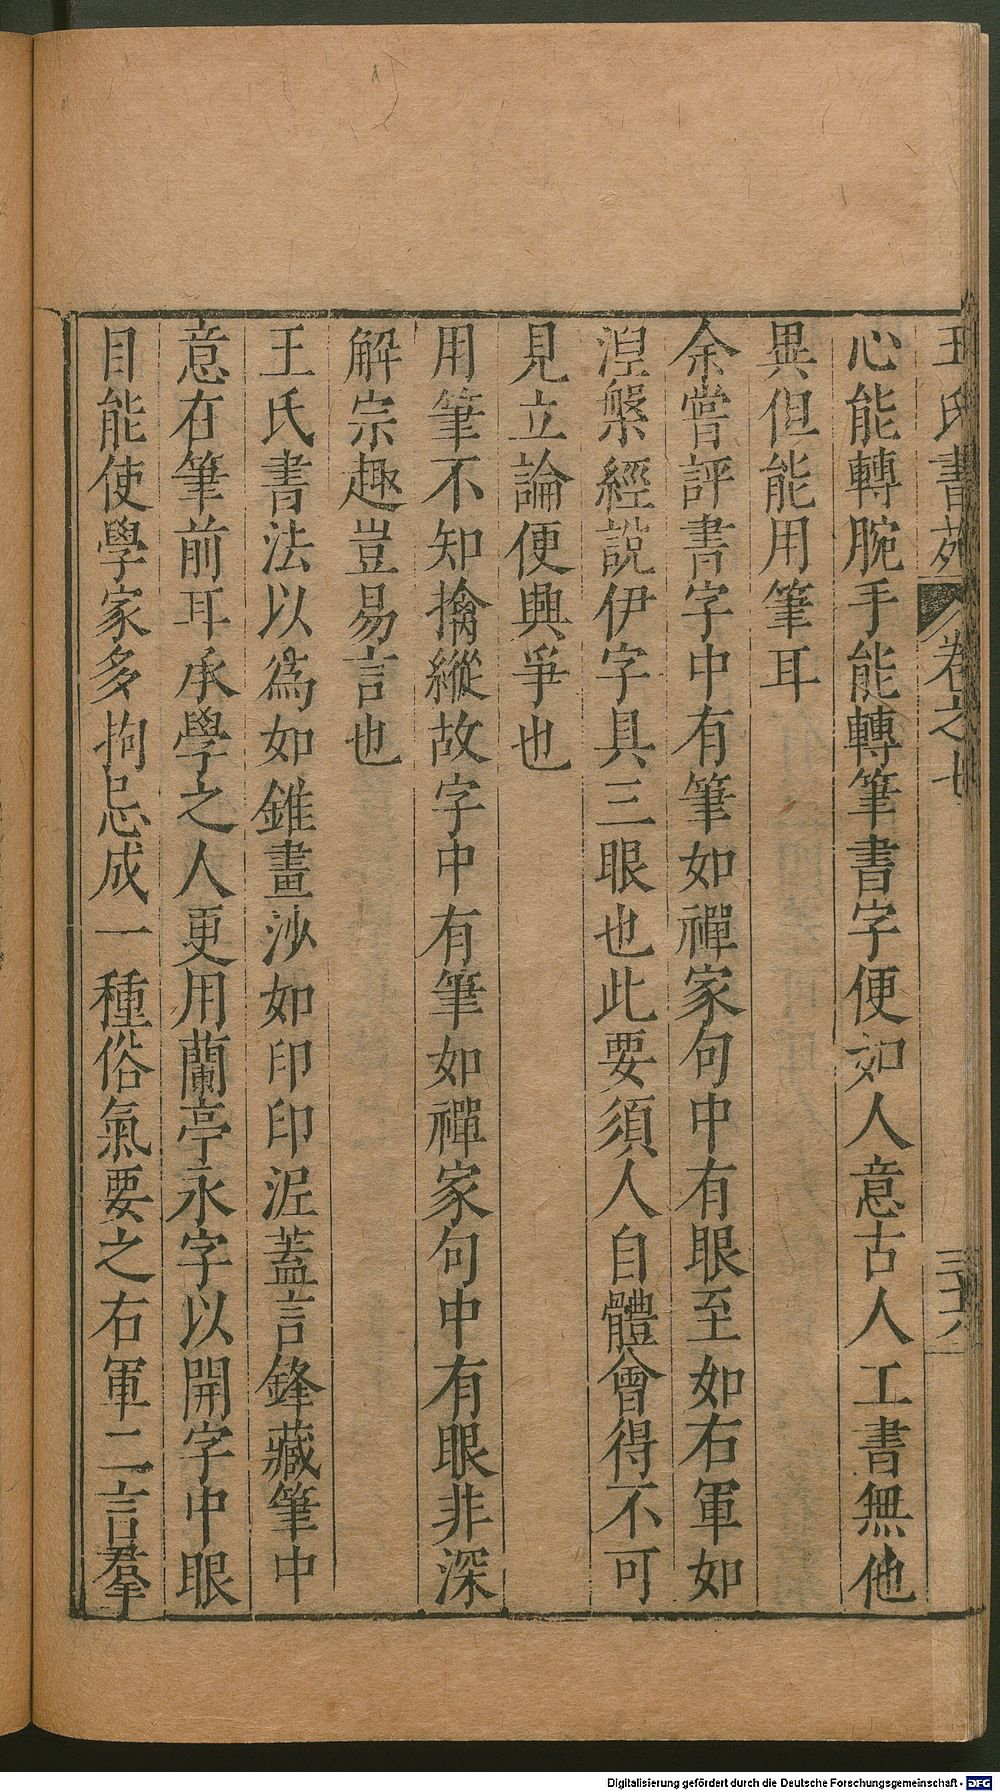 王氏書苑 卷之七 三六
心能轉腕手能轉筆書字便如人意古人工書無他
異但能用筆耳
余嘗評書字中有筆如禪家句中有眼至如右軍如
涅槃經說伊字具三眼也此要須人自體會得不可
見立論便興爭也
用筆不知擒縱故字中有筆如禪家句中有眼非深
解宗趣豈易言也
王氏書法以爲如錐畫沙如印印泥蓋言鋒藏筆中
意在筆前耳承學之人更用蘭亭永字以開字中眼
目能使學家多拘忌成一種俗氣要之右軍二言羣
Digitalisierung gefördert durch die Deutsche Forschungsgemeinschaft - DFG